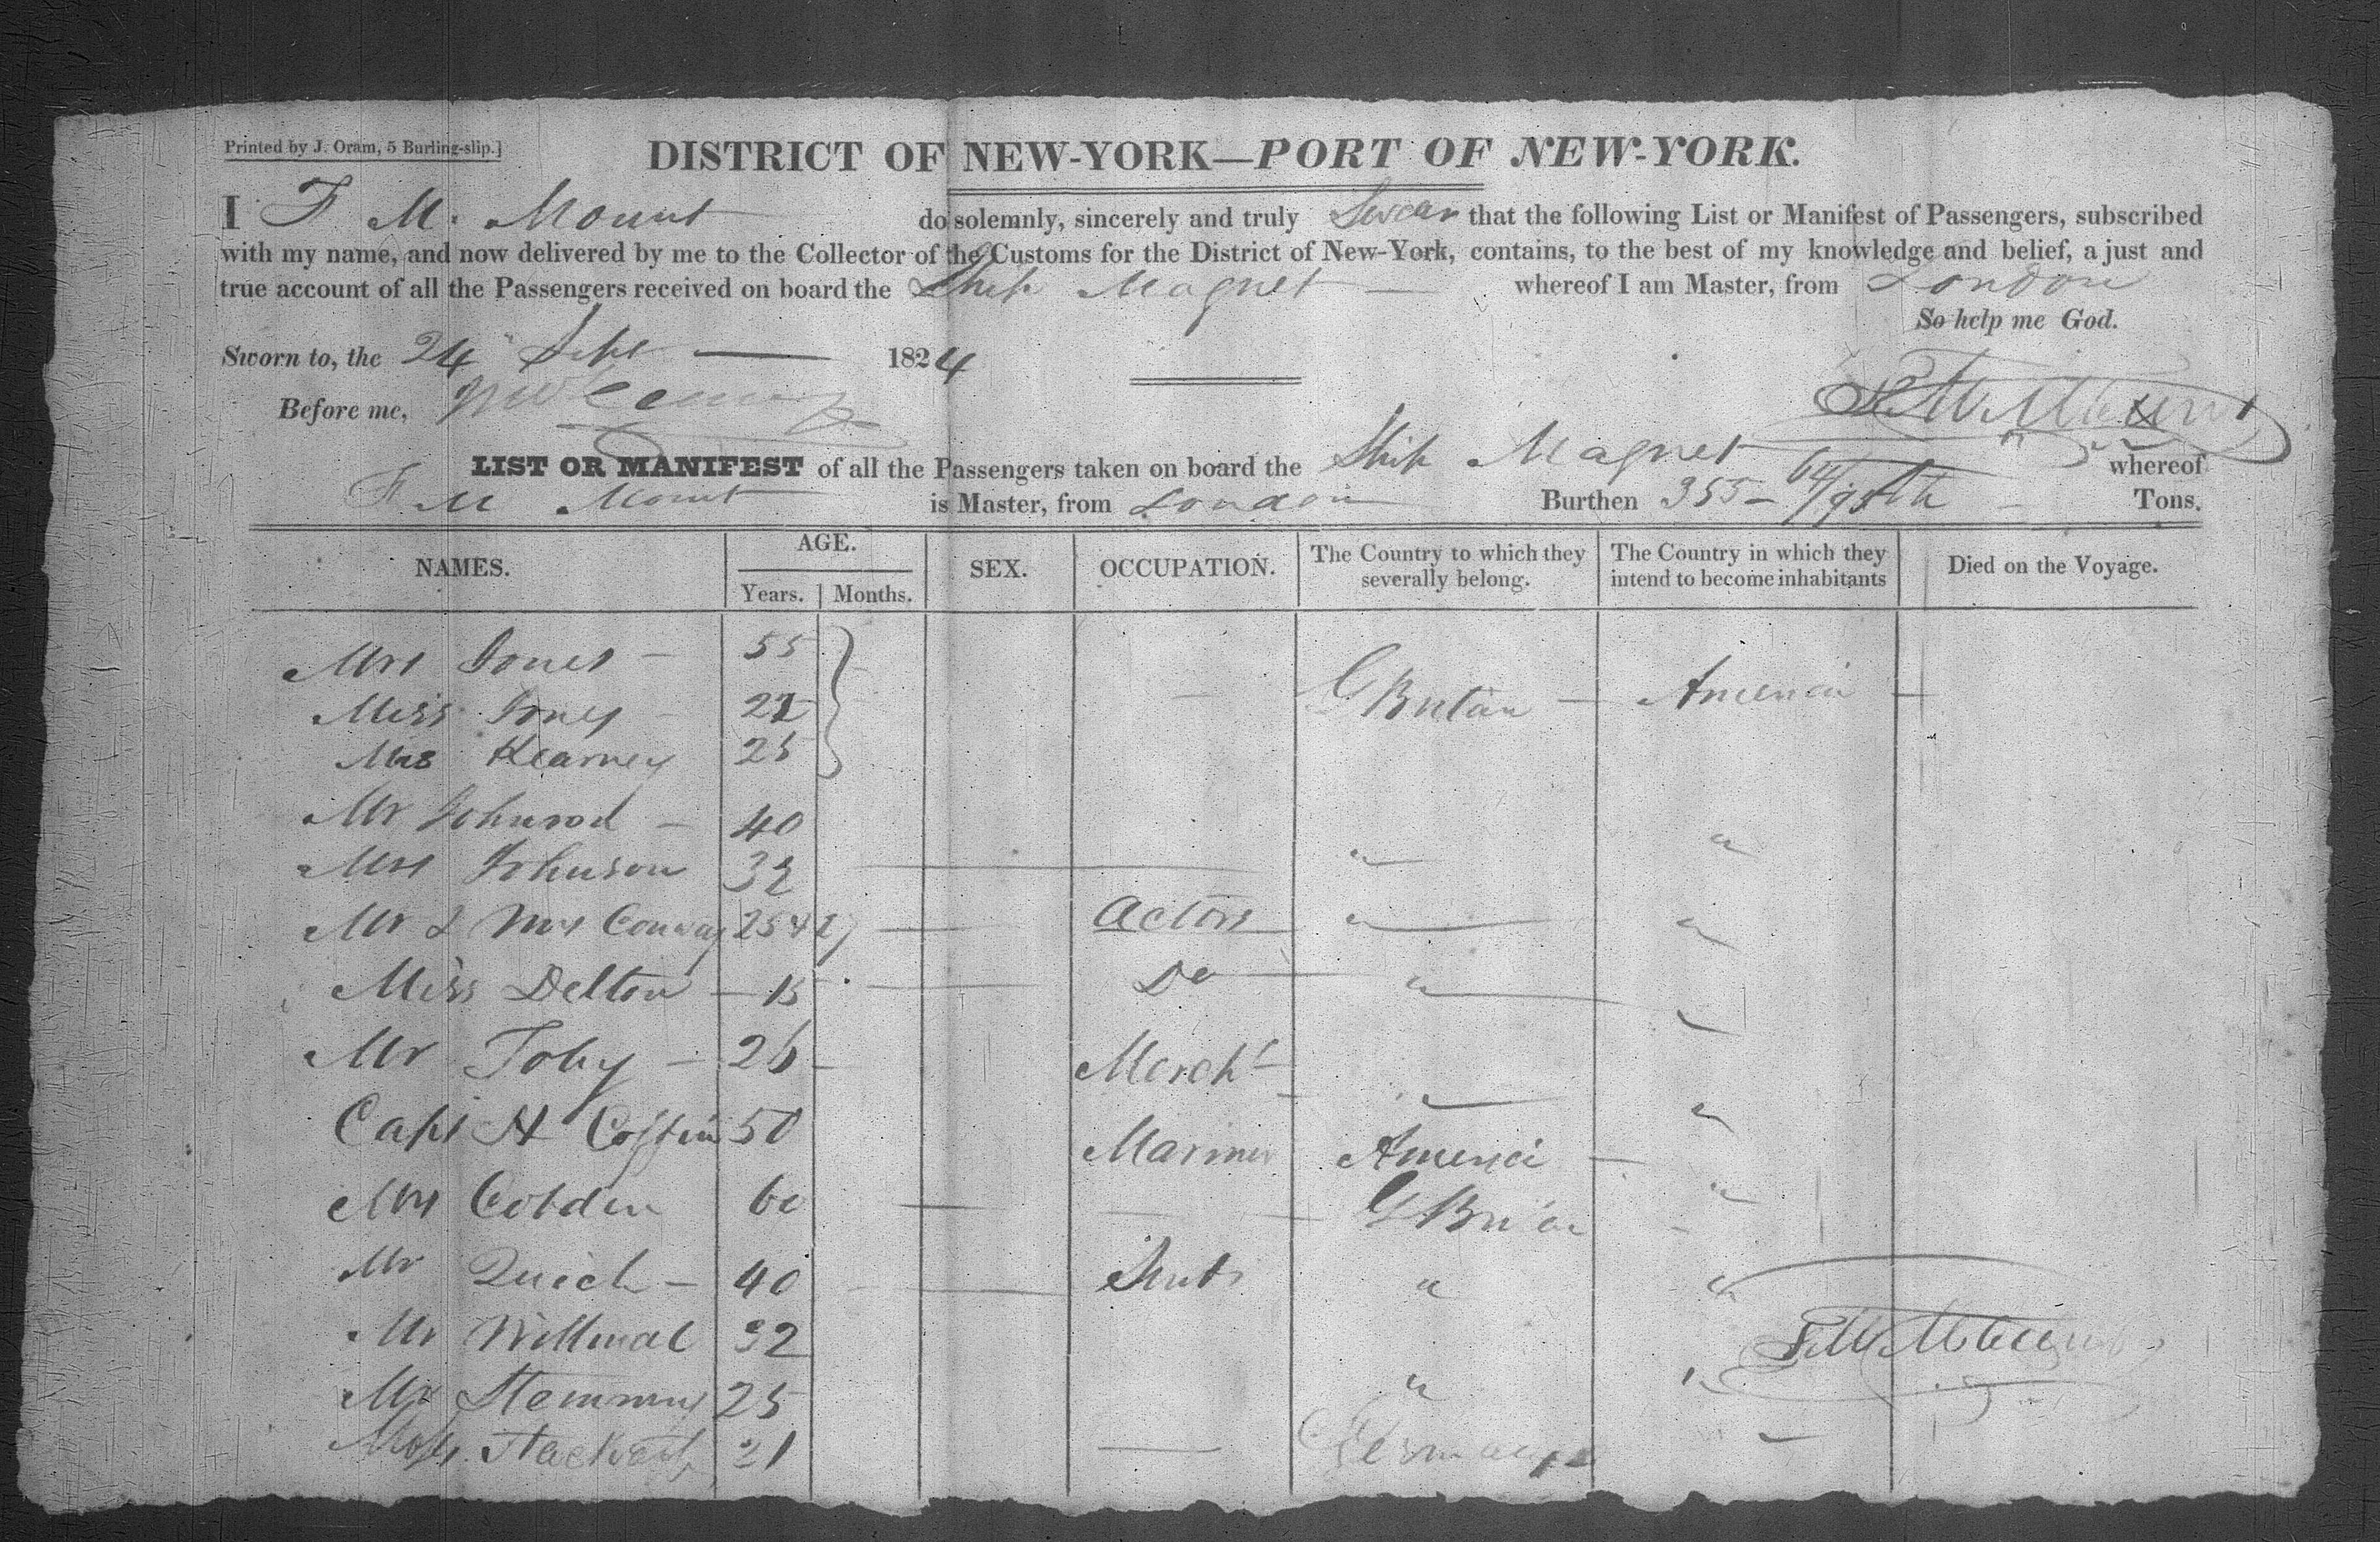 Printed by J. Oram, 5 Burling-slip.]
DISTRICT OF NEW-YORK—PORT OF NEW-YORK.
I F M. Mount do solemnly, sincerely and truly Swear that the following List or Manifest of Passengers, subscribed
with my name, and now delivered by me to the Collector of the Customs for the District of New-York, contains, to the best of my knowledge and belief, a just and
true account of all the Passengers received on board the Ship Magnet — whereof I am Master, from London
So help me God.
Sworn to, the 24 Sept — 1824
Before me,
F M Mount
LIST OR MANIFEST of all the Passengers taken on board the Ship Magnet whereof
F M Mount is Master, from London Burthen 355 – 64/95th Tons.
NAMES. AGE. SEX. OCCUPATION. The Country to which they severally belong. The Country in which they intend to become inhabitants Died on the Voyage.
Years. Months.
Mrs Jones — 55
Miss Jones — 22 G Britain — America —
Mrs Kearney 25
Mr Johnson — 40
Mrs Johnson 32 " "
Mr & Mrs Conway 25 & Actors " "
Miss Delton — 15 Do " "
Mr Toby — 26 — Mercht " "
Capt H Coffin 50 Mariner America — "
Mrs Cobden 60 G Britain "
Mr — 40 " "
Mr Willmal 32
Mr 25 " "
F M Mount
21 — Germany —